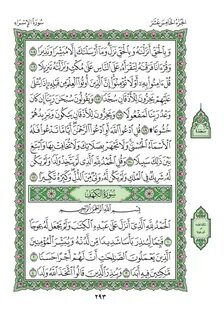 الجزء الخامس عشر
سورة الإسراء
وَبِالْحَقِّ أَنزَلْنَاهُ وَبِالْحَقِّ نَزَلَ وَمَا أَرْسَلْنَاكَ إِلَّا مُبَشِّرًا وَنَذِيرًا ١٠٥
وَقُرْءَانًا فَرَقْنَاهُ لِتَقْرَأَهُ عَلَى النَّاسِ عَلَىٰ مُكْثٍ وَنَزَّلْنَاهُ تَنزِيلًا ١٠٦
قُلْ ءَامِنُوا بِهِ أَوْ لَا تُؤْمِنُوا إِنَّ الَّذِينَ أُوتُوا الْعِلْمَ مِن قَبْلِهِ إِذَا
يُتْلَىٰ عَلَيْهِمْ يَخِرُّونَ لِلْأَذْقَانِ سُجَّدًا ١٠٧ وَيَقُولُونَ سُبْحَانَ رَبِّنَا إِن كَانَ
وَعْدُ رَبِّنَا لَمَفْعُولًا ١٠٨ وَيَخِرُّونَ لِلْأَذْقَانِ يَبْكُونَ وَيَزِيدُهُمْ
خُشُوعًا ۩ ١٠٩ قُلِ ادْعُوا اللَّهَ أَوِ ادْعُوا الرَّحْمَٰنَ أَيًّا مَّا تَدْعُوا فَلَهُ
الْأَسْمَاءُ الْحُسْنَىٰ وَلَا تَجْهَرْ بِصَلَاتِكَ وَلَا تُخَافِتْ بِهَا وَابْتَغِ
بَيْنَ ذَٰلِكَ سَبِيلًا ١١٠ وَقُلِ الْحَمْدُ لِلَّهِ الَّذِي لَمْ يَتَّخِذْ وَلَدًا وَلَمْ يَكُن
لَّهُ شَرِيكٌ فِي الْمُلْكِ وَلَمْ يَكُن لَّهُ وَلِيٌّ مِّنَ الذُّلِّ وَكَبِّرْهُ تَكْبِيرًا ١١١
سُورَةُ الْكَهْفِ
بِسْمِ اللَّهِ الرَّحْمَٰنِ الرَّحِيمِ
الْحَمْدُ لِلَّهِ الَّذِي أَنزَلَ عَلَىٰ عَبْدِهِ الْكِتَابَ وَلَمْ يَجْعَل لَّهُ عِوَجًا ١
قَيِّمًا لِّيُنذِرَ بَأْسًا شَدِيدًا مِّن لَّدُنْهُ وَيُبَشِّرَ الْمُؤْمِنِينَ
الَّذِينَ يَعْمَلُونَ الصَّالِحَاتِ أَنَّ لَهُمْ أَجْرًا حَسَنًا ٢
مَّاكِثِينَ فِيهِ أَبَدًا ٣ وَيُنذِرَ الَّذِينَ قَالُوا اتَّخَذَ اللَّهُ وَلَدًا ٤
٢٩٣